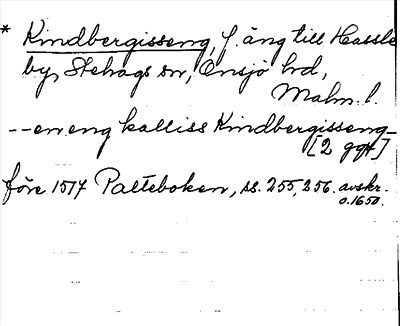 * Kindbergisseng, f. äng till Hassle
by, Stehags sn, Onsjö hd,
Malm. l.
-- en eng kalliss Kindbergisseng –
[2 ggr]
före 1517 Palteboken, ss. 255, 256. avskr.
o. 1650.